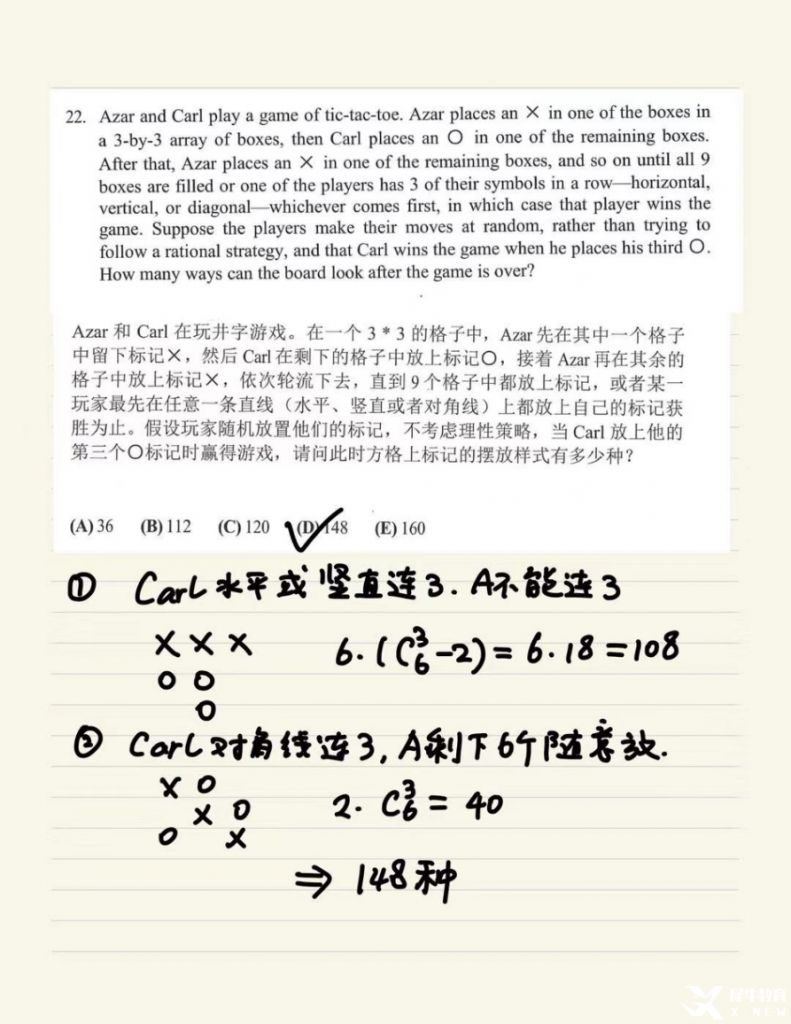 22. Azar and Carl play a game of tic-tac-toe. Azar places an X in one of the boxes in
a 3-by-3 array of boxes, then Carl places an O in one of the remaining boxes.
After that, Azar places an X in one of the remaining boxes, and so on until all 9
boxes are filled or one of the players has 3 of their symbols in a row—horizontal,
vertical, or diagonal—whichever comes first, in which case that player wins the
game. Suppose the players make their moves at random, rather than trying to
follow a rational strategy, and that Carl wins the game when he places his third O.
How many ways can the board look after the game is over?
Azar 和 Carl 在玩井字游戏。在一个 3 * 3 的格子中，Azar 先在其中一个格子
中留下标记×，然后 Carl 在剩下的格子中放上标记〇，接着 Azar 再在其余的
格子中放上标记×，依次轮流下去，直到 9 个格子中都放上标记，或者某一
玩家最先在任意一条直线（水平、竖直或者对角线）上都放上自己的标记获
胜为止。假设玩家随机放置他们的标记，不考虑理性策略，当 Carl 放上他的
第三个〇标记时赢得游戏，请问此时方格上标记的摆放样式有多少种？
(A) 36 (B) 112 (C) 120 (D) 148 (E) 160
① Carl 水平或竖直连3. A不能连3
X X X 6·(C₆³-2) = 6·18 = 108
O O
O
② Carl 对角线连3, A剩下6个随意放.
X O
X O 2·C₆³ = 40
O X
⇒ 148种
犀牛教育
X NEW